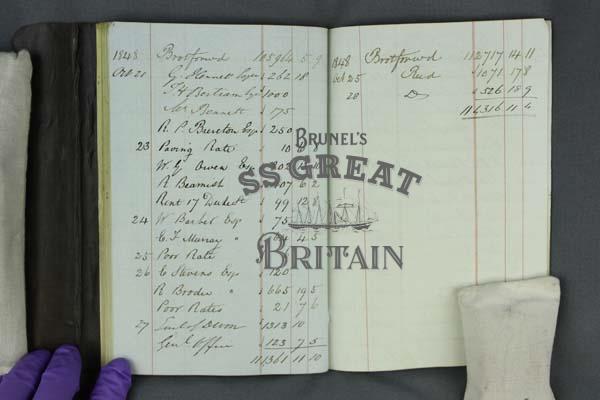 1848 Brotforwd 105964 5 9
Oct 21 G Hennet Esq 262 18
1000
Mr Bennett 175
R. P. Brereton Esq 250
23 Paving Rate 10
W. G. Owen Esq
R Beamish 6 2
Rent 17 Duke St 99 12 8
24 W Barber Esq 75
C. F. Murray " 4 5
25 Poor Rate
26 C Stevens Esq 120
R Brodie " 665 19 5
Poor Rates 21 7 6
27 Earl of Devon 1313 10
Genl Office 123 7 5
111361 11 10
1848 Brotforwd 112717 14 11
Oct 25 Paid 1071 17 8
28 Do 526 18 9
114316 11 4
BRUNEL'S
SS GREAT
BRITAIN